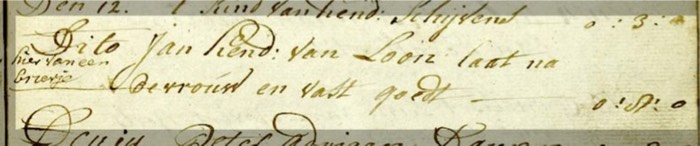 Den 12. 1 Kind van hend: Schijvens 0 : 3 :
Dito Jan hend: van Loon laat na
hier van een
brievje
de vrouw en vast goedt — 0 : 8 : 0
Peter Adriaan